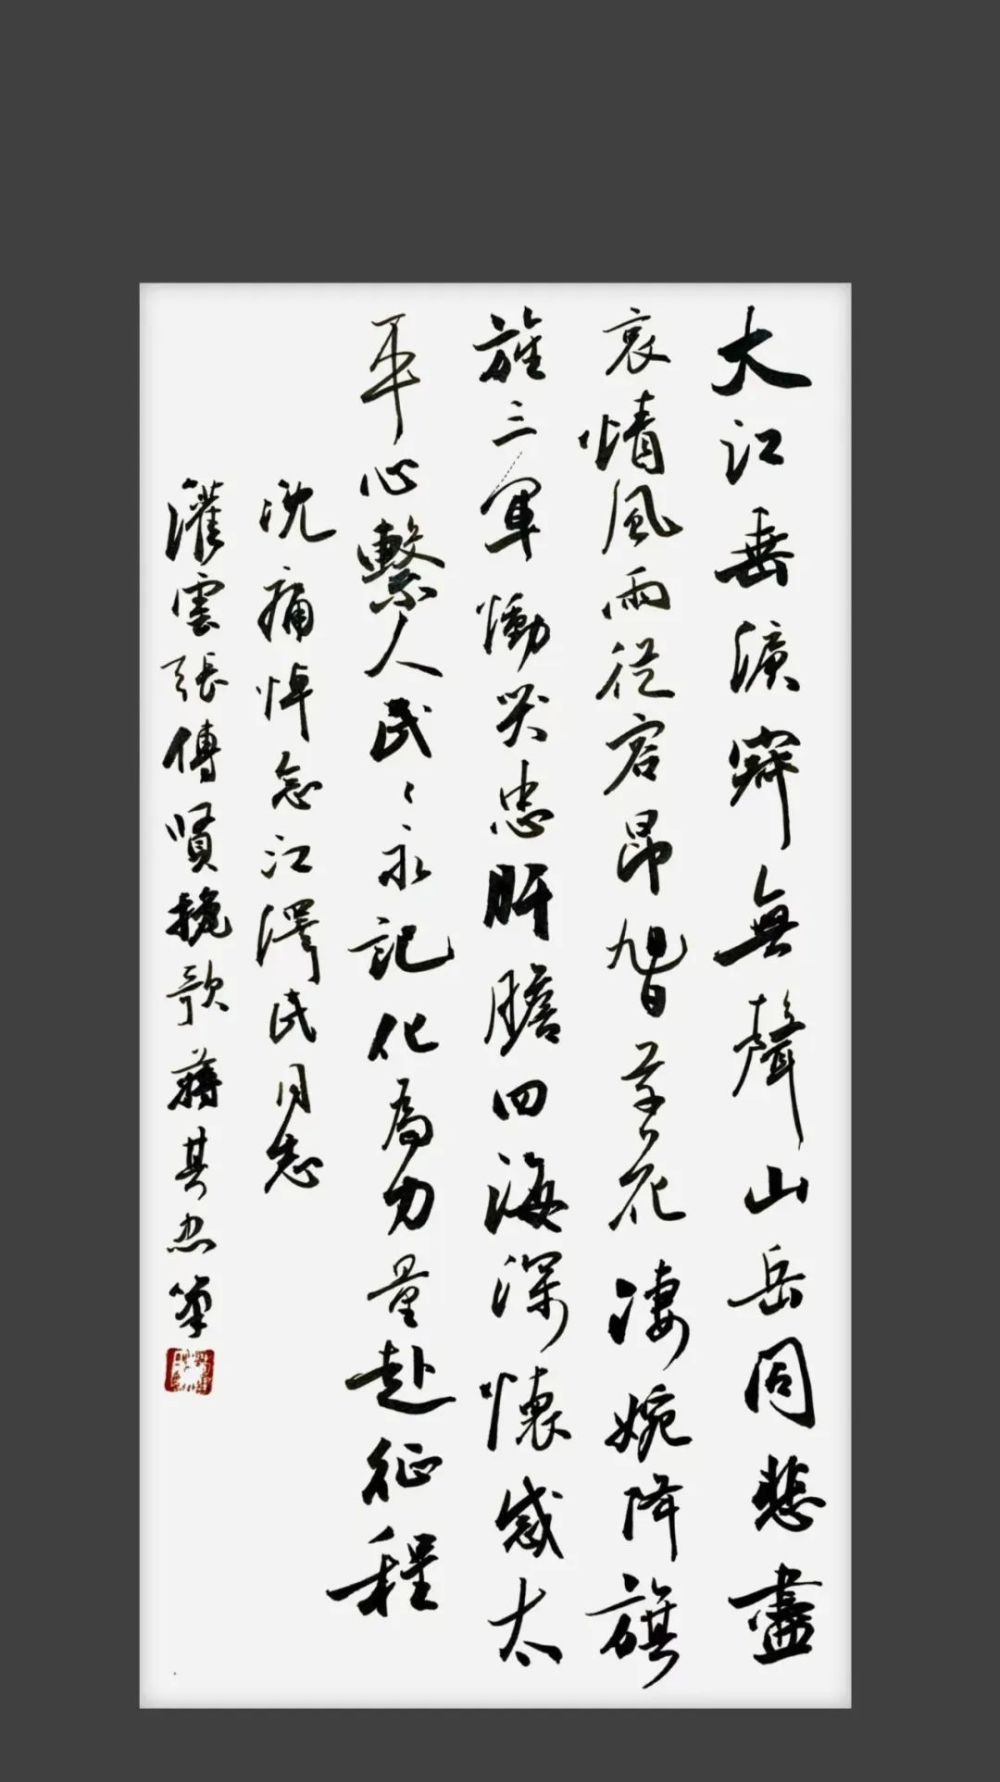 大江垂淚寂無聲山岳同悲盡
哀情風雨從容昂旭日草花淒婉降旗
旌三軍慟哭忠肝膽四海深懷感太
平心繫人民々永記化為力量赴征程
沈痛悼念江澤民同志
灌雲張傳賢挽歌蔣其筆